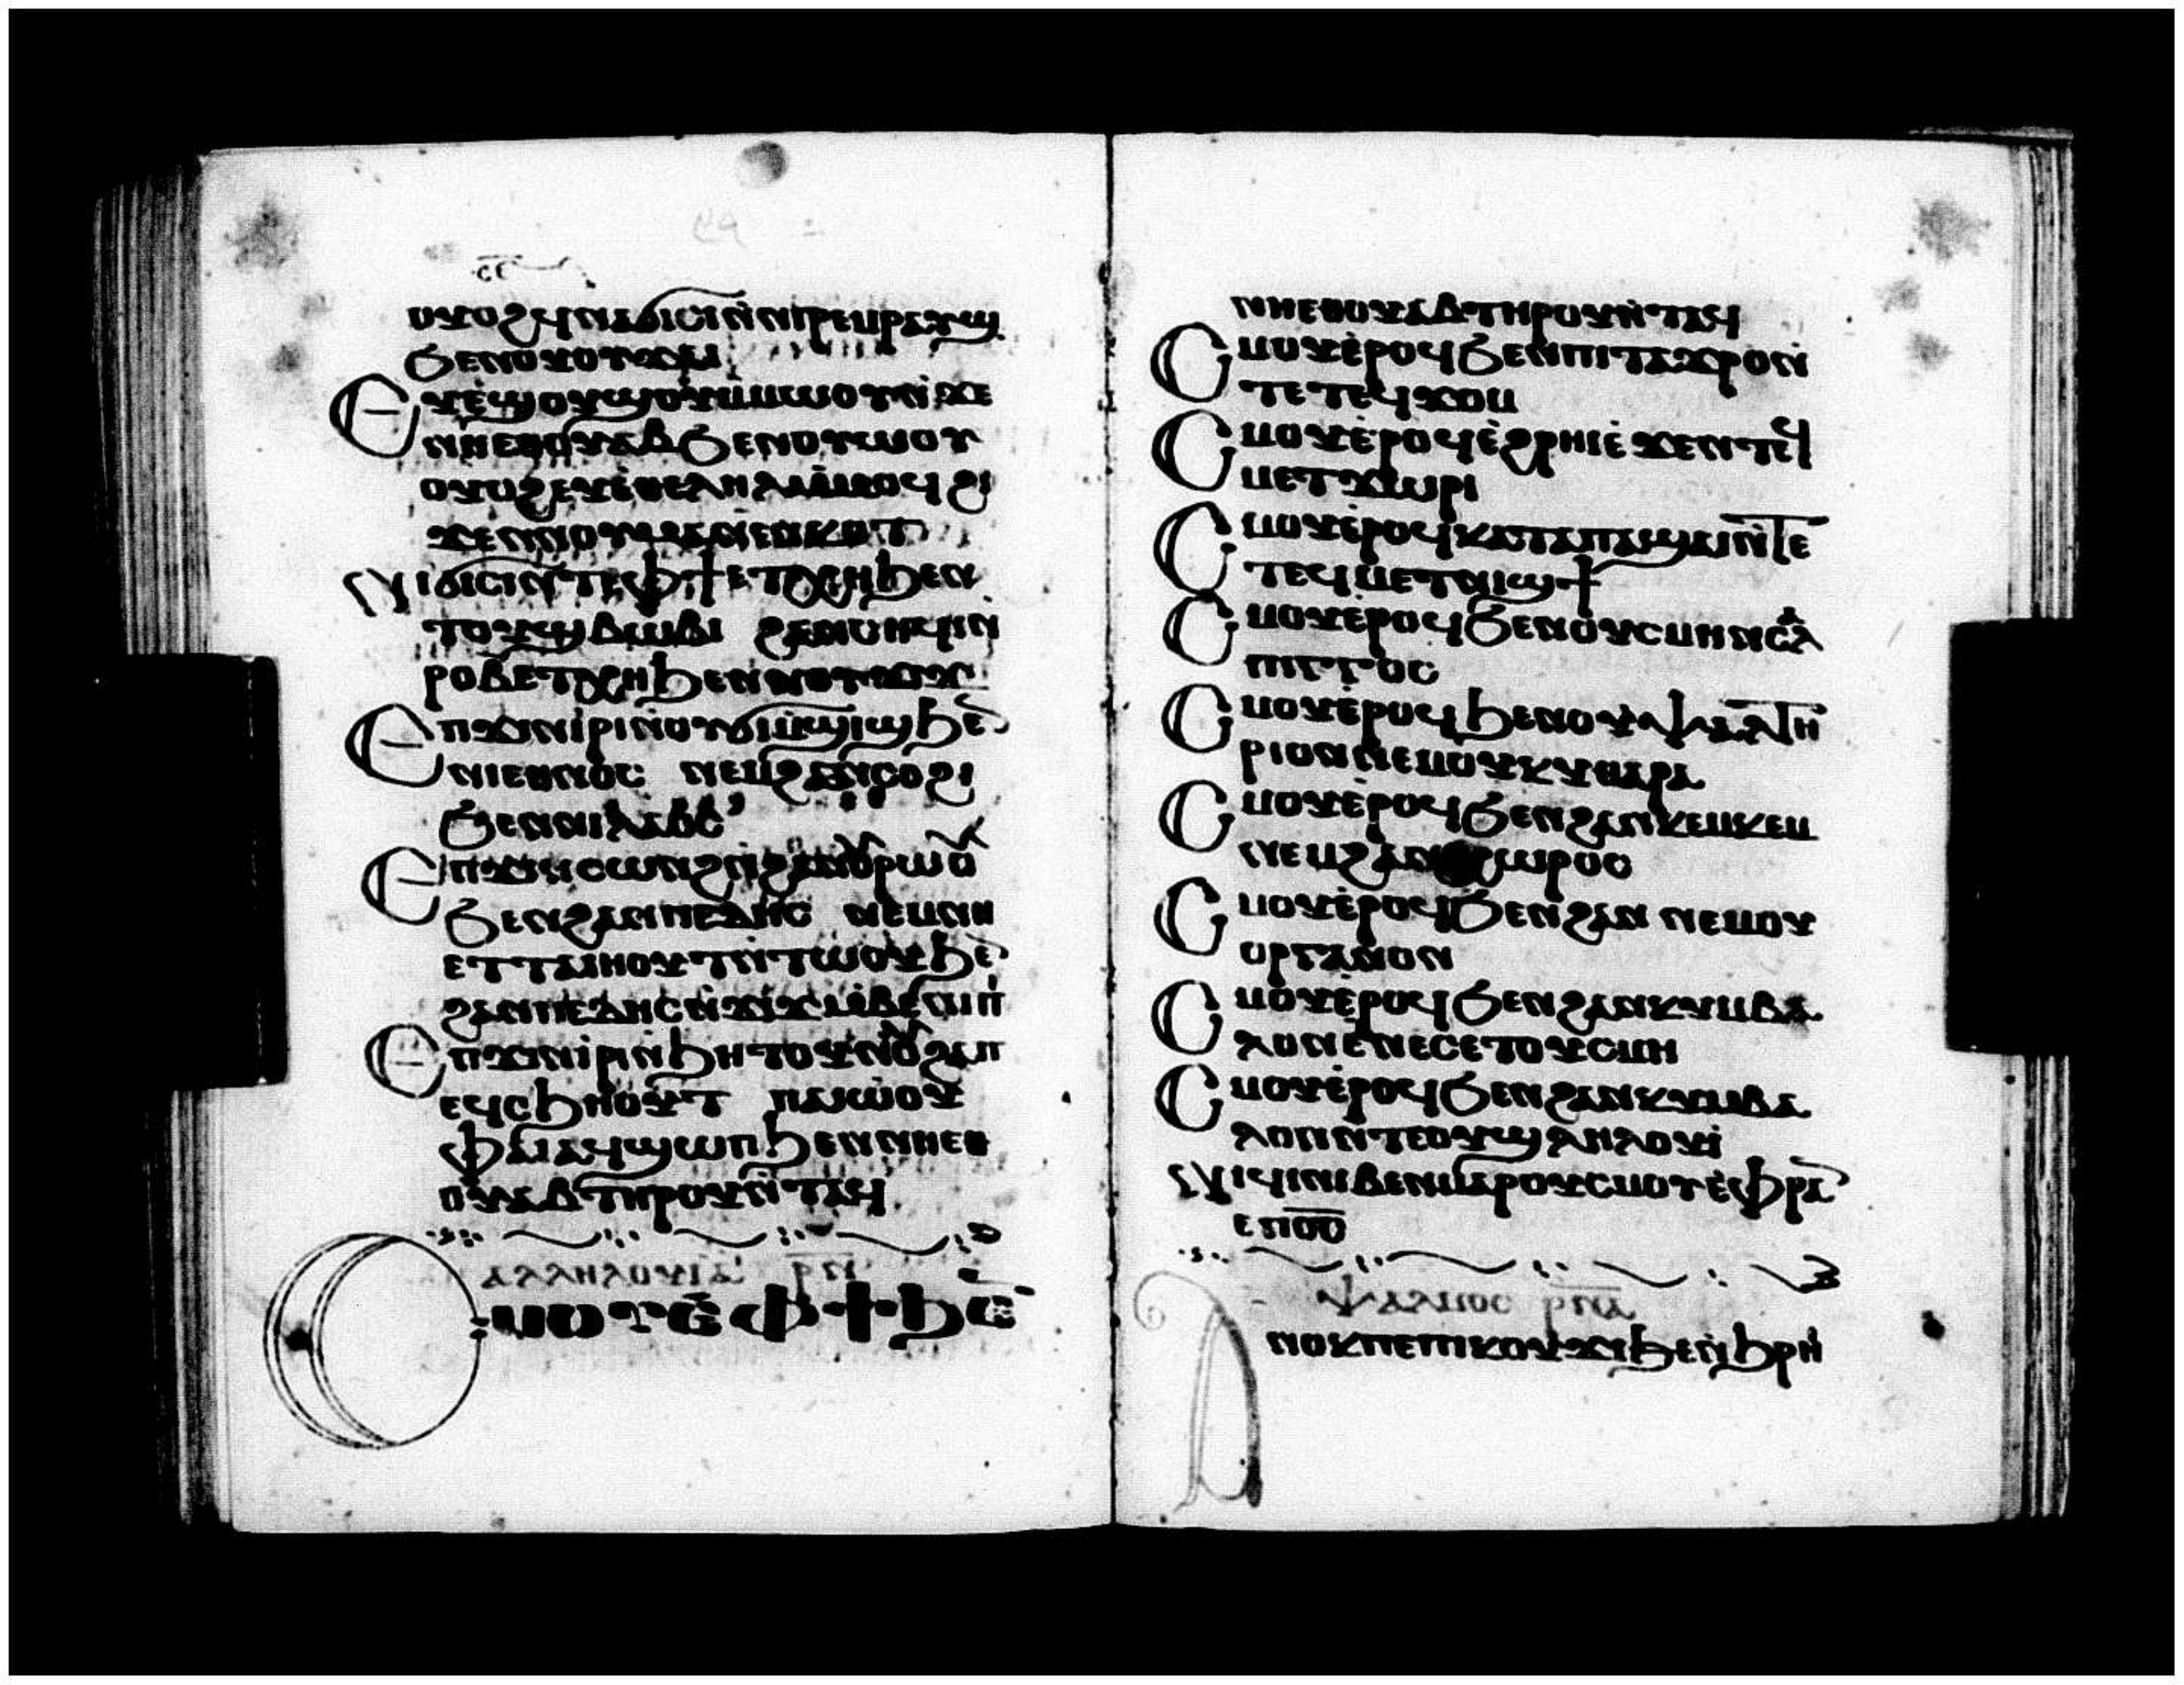 ⲟⲩⲟϩ ϥⲛⲁϭⲓⲥⲓ ⲛ̀ⲛⲓⲣⲉⲙⲣⲁⲩϣ
ϧⲉⲛ ⲟⲩⲟⲩϫⲁⲓ
Ⲉⲩⲉ̀ϣⲟⲩϣⲟⲩ ⲙ̀ⲙⲱⲟⲩ ⲛ̀ϫⲉ
ⲛⲏⲉⲑⲟⲩⲁⲃ ϧⲉⲛ ⲟⲩⲱⲟⲩ
ⲟⲩⲟϩ ⲉⲩⲉ̀ⲑⲉⲗⲏⲗ ⲙ̀ⲙⲱⲟⲩ ϩⲓ
ϫⲉⲛ ⲛⲟⲩⲙⲁⲛⲉⲛⲕⲟⲧ
Ⲛⲓϭⲓⲥⲓ ⲛ̀ⲧⲉ ⲫϯ ⲉⲧⲭⲏ ϧⲉⲛ
ⲧⲟⲩϣⲃⲱⲃⲓ ϩⲁⲛⲥⲏϥⲓ ⲛ̀
ⲣⲟ ⲃ ⲉⲧⲭⲏ ϧⲉⲛ ⲛⲟⲩϫⲓϫ
Ⲉⲡϫⲓⲛⲓ̀ⲣⲓ ⲛ̀ⲟⲩϭⲓⲙ̀ⲡϣⲓϣ ϧⲉ
ⲛⲓⲉⲑⲛⲟⲥ ⲛⲉⲙ ϩⲁⲛⲥⲟϩⲓ
ϧⲉⲛ ⲛⲓⲗⲁⲟⲥ
Ⲉⲡϫⲓⲛⲥⲱⲛϩ ⲛ̀ϩⲁⲛⲟⲩⲣⲱⲟⲩ
ϧⲉⲛ ϩⲁⲛⲡⲉⲇⲏⲥ ⲛⲉⲙ ⲛⲏ
ⲉⲧⲧⲁⲓⲏⲟⲩⲧ ⲛ̀ⲧⲱⲟⲩ ϧⲉ
ϩⲁⲛⲡⲉⲇⲏⲥ ⲛ̀ϫⲓϫ ⲙ̀ⲃⲉⲛⲓⲡⲓ
Ⲉⲡϫⲓⲛⲓ̀ⲣⲓ ⲛ̀ϧⲏⲧⲟⲩ ⲛ̀ⲟⲩϩⲁⲡ
ⲉϥⲥϧⲏⲟⲩⲧ ⲡⲁⲓⲱⲟⲩ
ⲫⲁⲓ ⲁϥϣⲱⲡ ϧⲉⲛ ⲛⲏⲉⲑ
ⲟⲩⲁⲃ ⲧⲏⲣⲟⲩ ⲛ̀ⲧⲁϥ
ⲁⲗⲗⲏⲗⲟⲩⲓⲁ ⲣⲛ
Ⲥⲙⲟⲩ ⲉ̀ⲫϯ ϧⲉ
ⲛⲏⲉⲑⲟⲩⲁⲃ ⲧⲏⲣⲟⲩ ⲛ̀ⲧⲁϥ
Ⲥⲙⲟⲩ ⲉ̀ⲣⲟϥ ϧⲉⲛ ⲡⲓⲧⲁϫⲣⲟ ⲛ̀
ⲧⲉ ⲧⲉϥϫⲟⲙ
Ⲥⲙⲟⲩ ⲉ̀ⲣⲟϥ ⲉ̀ϩⲣⲏⲓ ⲉ̀ϫⲉⲛ ⲧⲉϥ
ⲙⲉⲧϫⲱⲣⲓ
Ⲥⲙⲟⲩ ⲉ̀ⲣⲟϥ ⲕⲁⲧⲁ ⲡⲁϣⲁⲓ ⲛ̀ⲧⲉ
ⲧⲉϥⲙⲉⲧⲛⲓϣϯ
Ⲥⲙⲟⲩ ⲉ̀ⲣⲟϥ ϧⲉⲛ ⲟⲩⲥⲙⲏ ⲛ̀ⲥⲁⲗ
ⲡⲓⲅⲅⲟⲥ
Ⲥⲙⲟⲩ ⲉ̀ⲣⲟϥ ϧⲉⲛ ⲟⲩⲯⲁⲗⲧⲏ
ⲣⲓⲟⲛ ⲛⲉⲙ ⲟⲩⲕⲩⲑⲁⲣⲁ
Ⲥⲙⲟⲩ ⲉ̀ⲣⲟϥ ϧⲉⲛ ϩⲁⲛⲕⲉⲙⲕⲉⲙ
ⲛⲉⲙ ϩⲁⲛⲭⲱⲣⲟⲥ
Ⲥⲙⲟⲩ ⲉ̀ⲣⲟϥ ϧⲉⲛ ϩⲁⲛ ⲛⲉⲙ ⲟⲩ
ⲟⲣⲅⲁⲛⲟⲛ
Ⲥⲙⲟⲩ ⲉ̀ⲣⲟϥ ϧⲉⲛ ϩⲁⲛⲕⲩⲙⲃⲁ
ⲗⲟⲛ ⲉⲛⲉⲥⲉ ⲧⲟⲩⲥⲙⲏ
Ⲥⲙⲟⲩ ⲉ̀ⲣⲟϥ ϧⲉⲛ ϩⲁⲛⲕⲩⲙⲃⲁ
ⲗⲟⲛ ⲛ̀ⲧⲉ ⲟⲩⲉϣⲗⲏⲗⲟⲩⲓ
Ⲛⲓϥⲓ ⲛⲓⲃⲉⲛ ⲙⲁⲣⲟⲩⲥⲙⲟⲩ ⲉ̀ⲫⲣⲁ
ⲉⲡⲟⲥ
ⲯⲁⲗⲙⲟⲥ ⲣⲛⲁ
Ⲁⲛⲟⲕ ⲡⲉ ⲡⲓⲕⲟⲩϫⲓ ϧⲉⲛ ϧⲣⲏⲓ